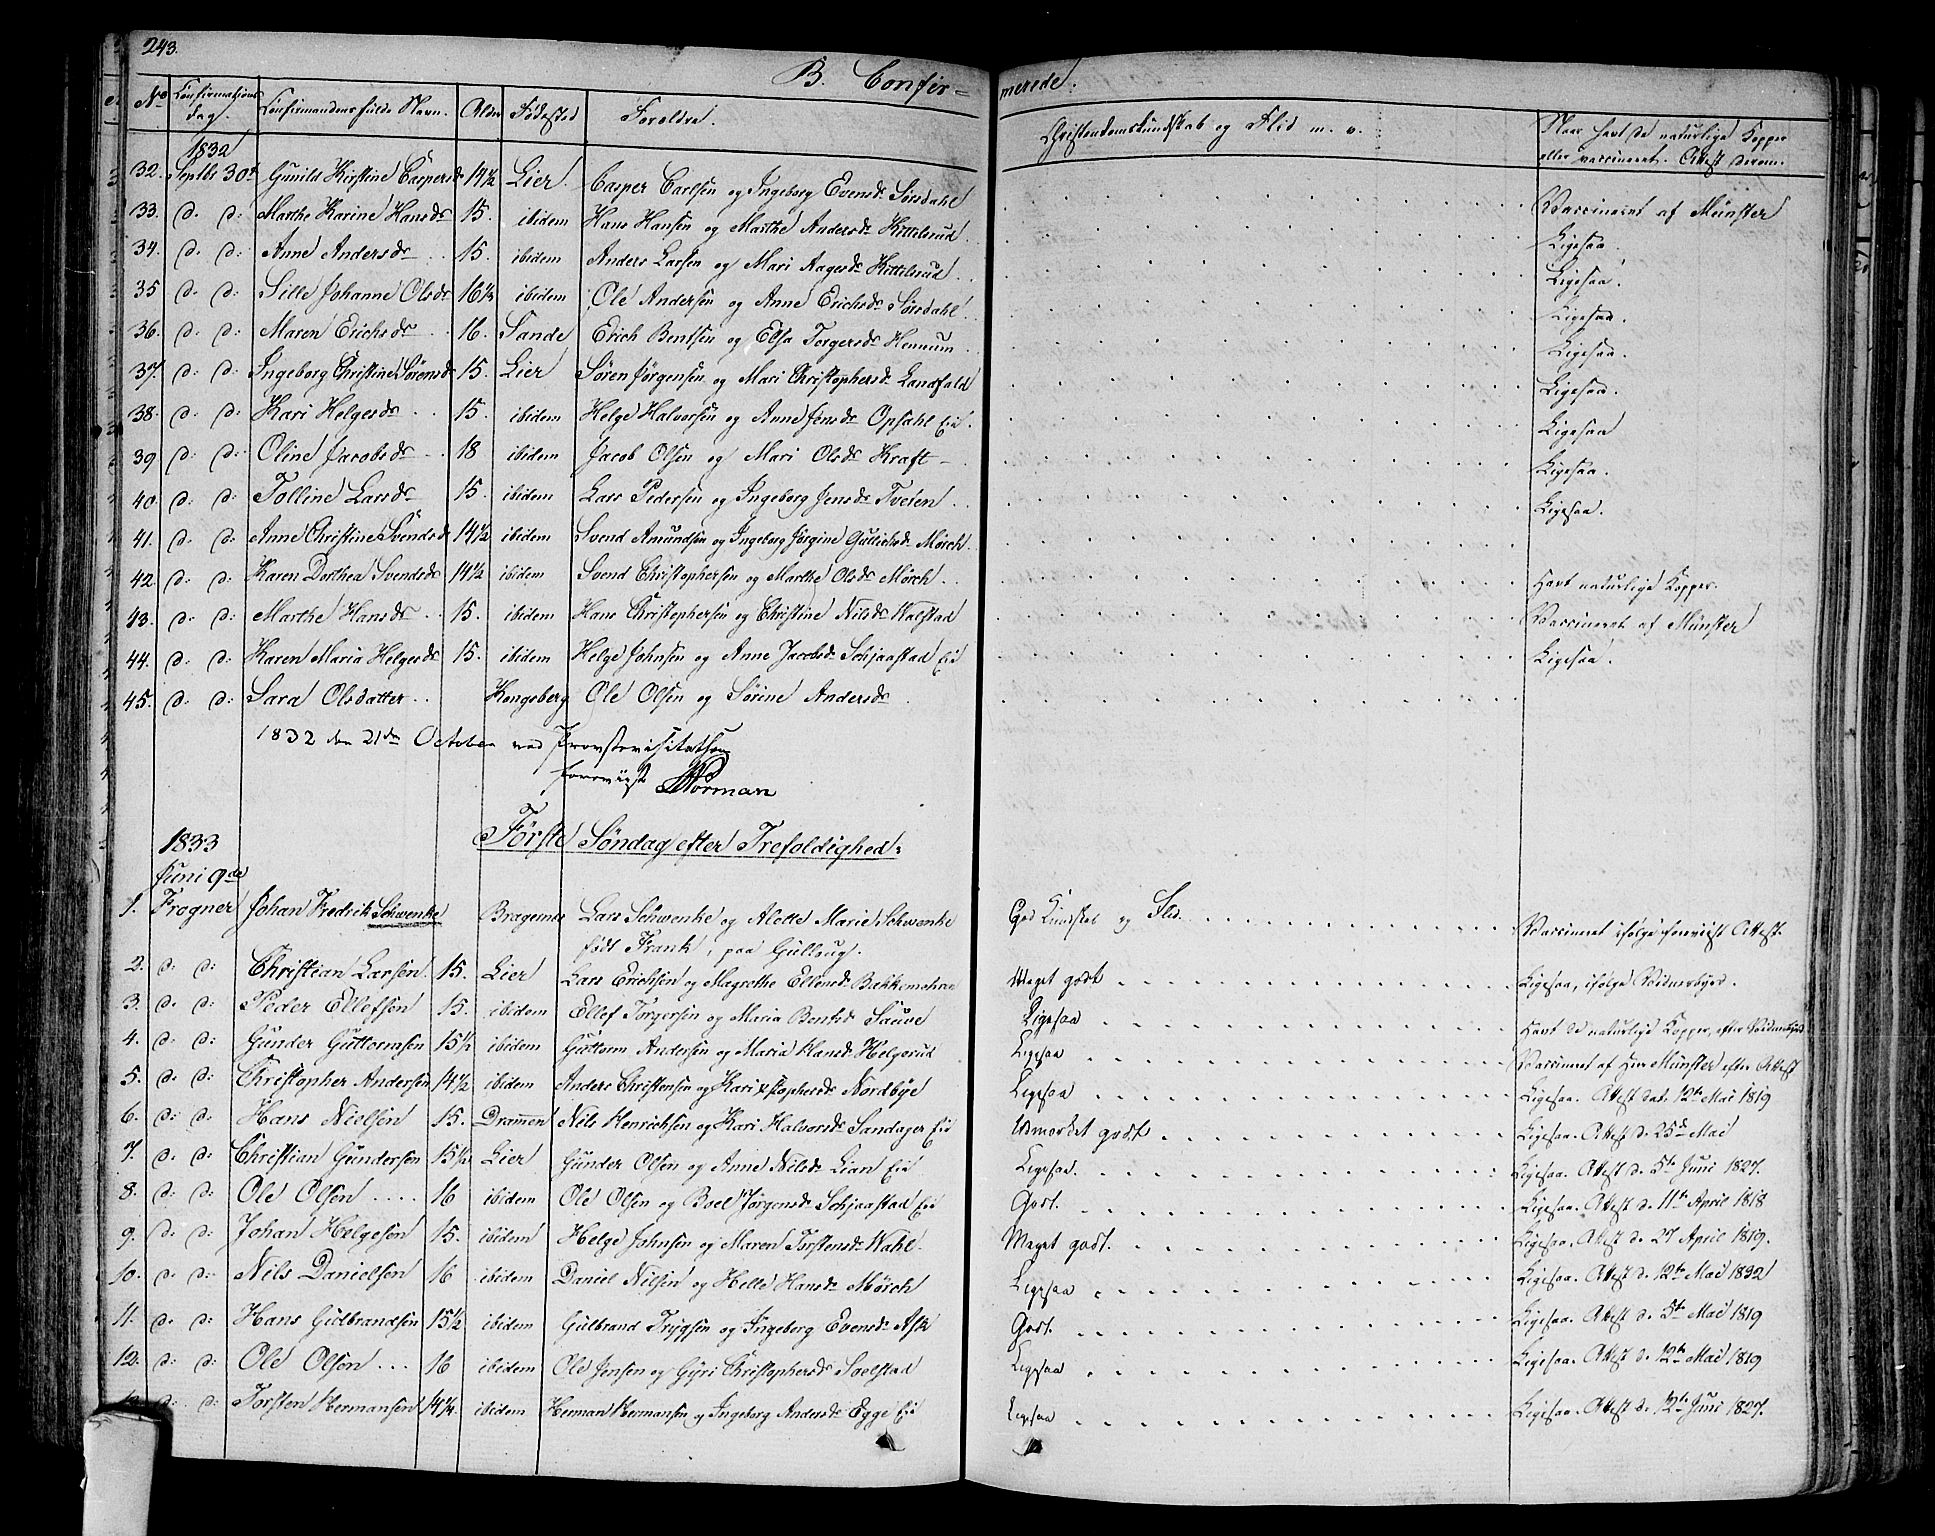 243.
B. Confir-
merede.
No Confirmations Dag. Confirmandens fulde Navn. Alder Födested Forældre. Christendomskundskab og Flid m. v. Naar havt de naturlige Kopper
eller vaccineret. Attest derom.
1832
32. Septbr 30te Gunild Kirstine Caspersdr 14½ Lier. Casper Carlsen og Ingeborg Evensdr Sørsdahl Vaccineret af Münster
33. d. d: Marthe Karine Hansdr 15. ibidem Hans Hansen og Marthe Andersdr Kittelsrud. Ligesaa.
34. d. d: Anne Andersdr 15. ibidem Anders Larsen og Mari Aagesdr Kittelsrud. Ligesaa.
35 d. d: Sille Johanne Olsdr 16½ ibidem Ole Andersen og Anne Erichsdr Sørsdahl. Ligesaa.
36. d: d: Maren Erichsdr 16. Sande Erich Bentsen og Elsa Torgersdr Hennum Ligesaa.
37. d: d: Ingeborg Christine Sørensdr 15. Lier Søren Jørgensen og Mari Christophersdr Landfald Ligesaa.
38. d: d: Kari Helgesdr 15. ibidem Helge Halvorsen og Anne Jensdr Opsahl Eie. Ligesaa
39 d: d: Oline Jacobsdr 18 ibidem Jacob Olsen og Mari Olsdr Kraft Ligesaa.
40. d: d: Tolline Larsdr 15. ibidem Lars Pedersen og Ingeborg Jensdr Tveten Ligesaa.
41. d: d: Anne Christine Svendsdr 14½ ibidem Svend Amundsen og Ingeborg Jørgine Gullichsdr Mørch.
42. d: d: Karen Dorthea Svendsdr 14½ ibidem Svend Christophersen og Marthe Olsdr Mørch. Havt naturlige Kopper.
43. d: d: Marthe Hansdr 15. ibidem Hans Christophersen og Christine Nilsdr Valstad Vaccineret af Münster
44. d: d: Karen Maria Helgesdr 15. ibidem Helge Johnsen og Anne Jacobsdr Schjaastad Eie Ligesaa.
45. d: d: Sara Olsdatter Kongsberg Ole Olsen og Sørine Andersdr
1832 den 21de October ved Provstevisitatsen
foreviist Norman
1833 Første Søndag efter Trefoldighed.
Juni 9de
1. Frogner Johan Fredrik Schwenke Bragernes Lars Schwenke og Alette Marie Schwenke God Kundskab og Flid. Vaccineret ifølge foreviist Attest.
født Frank, paa Gullaug.
2. d: d: Christian Larsen 15. Lier Lars Erichsen og Magrethe Ellensdr Bækkemohren Meget godt Ligesaa, ifølge Vidnesbyrd.
3. d. d: Peder Ellefsen 15. ibidem Ellef Torgersen og Maria Bentsdr Sauue Ligesaa Havt de naturlige Kopper, efter Vidnesbyrd
4. d: d: Gunder Guttormsen 15½ ibidem Guttorm Andersen og Maria Hansdr Helgerud Ligesaa Vaccineret af Herr Münster efter Attest
5. d. d: Christopher Andersen 14½ ibidem Anders Christensen og Kari Xstophersdr Nordbye Ligesaa Ligesaa. Attest dat. 12te Mai 1819
6. d: d: Hans Nielsen 15. Drammen Nils Henrichsen og Kari Halvorsdr Sandager Eie Udmærket godt Ligesaa. Attest d. 25de Mai
7. d. d. Christian Gundersen 15½ Lier Gunder Olsen og Anne Nilsdr Lian Eie Ligesaa. Ligesaa. Attest d. 5te Juni 1827.
8. d: d: Ole Olsen 16 ibidem Ole Olsen og Boel Jørgensdr Schjaastad Eie Godt. Ligesaa. Attest d. 11te April 1818
9. d: d: Johan Helgesen 15. ibidem Helge Johnsen og Maren Torstensdr Wahl. Meget godt. Ligesaa. Attest d. 27 April 1819.
10. d. d: Nils Danielsen 16 ibidem Daniel Nilsen og Helle Hansdr Mörch Ligesaa Ligesaa. Attest d. 12te Mai 1832
11. d: d: Hans Gulbrandsen 15½ ibidem Gulbrand Trygsen og Ingeborg Evensdr Ask Godt. Ligesaa. Attest d. 5te Mai 1819
12. d: d: Ole Olsen 16 ibidem Ole Jensen og Gyri Christophersdr Soelstad Ligesaa Ligesaa. Attest d. 12te Mai 1819
d: d: Torsten Hermansen 14¼ ibidem Herman Hermansen og Ingeborg Andersdr Egge Eie Ligesaa Ligesaa. Attest d. 12te Juni 1827.